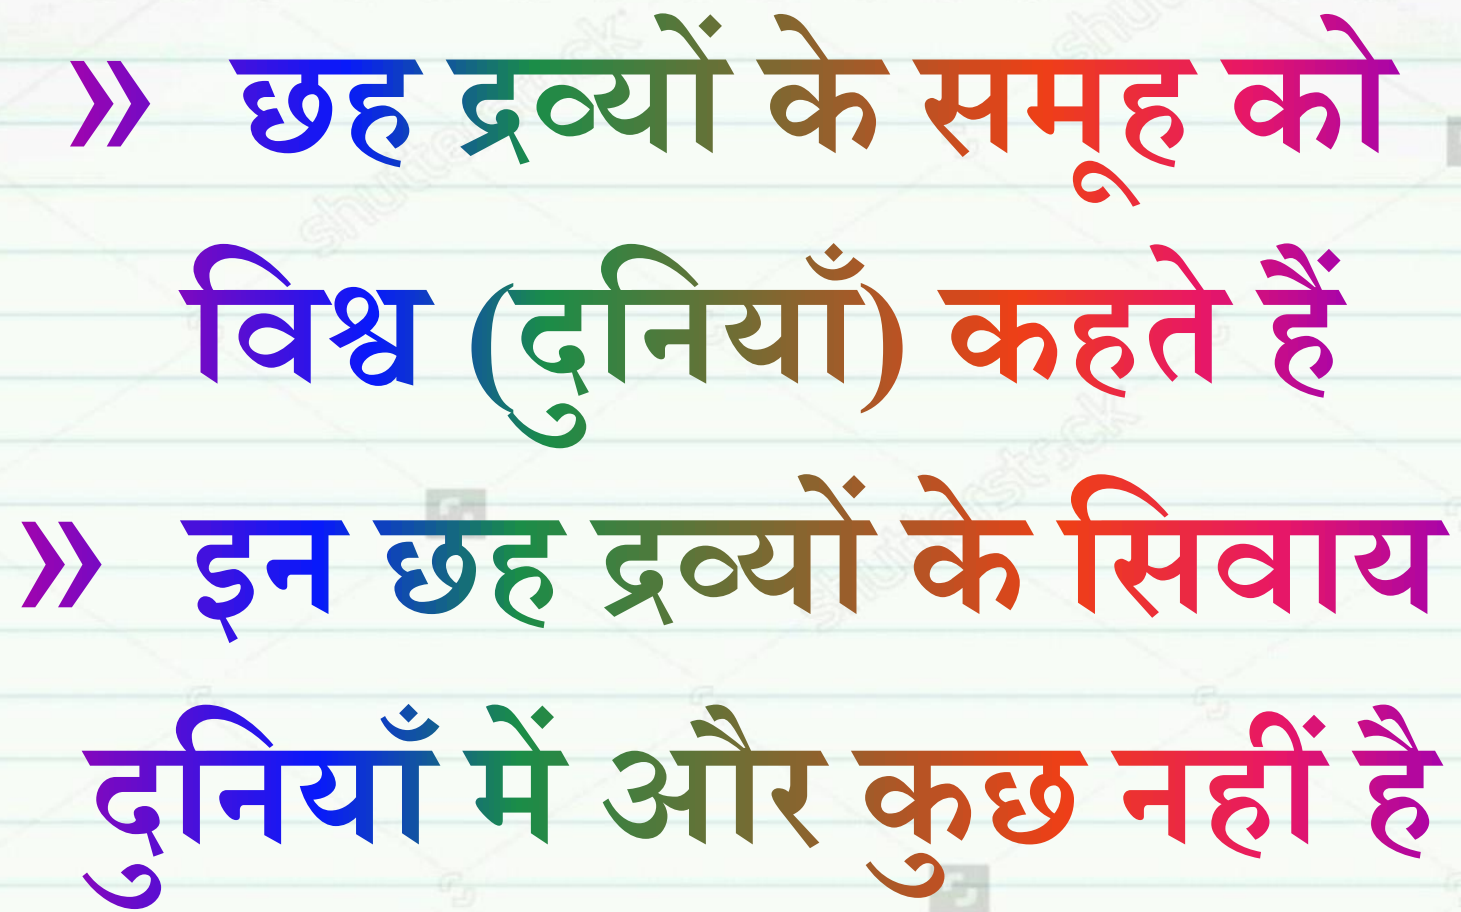 » छह द्रव्यों के समूह को
विश्व (दुनियाँ) कहते हैं
» इन छह द्रव्यों के सिवाय
दुनियाँ में और कुछ नहीं है